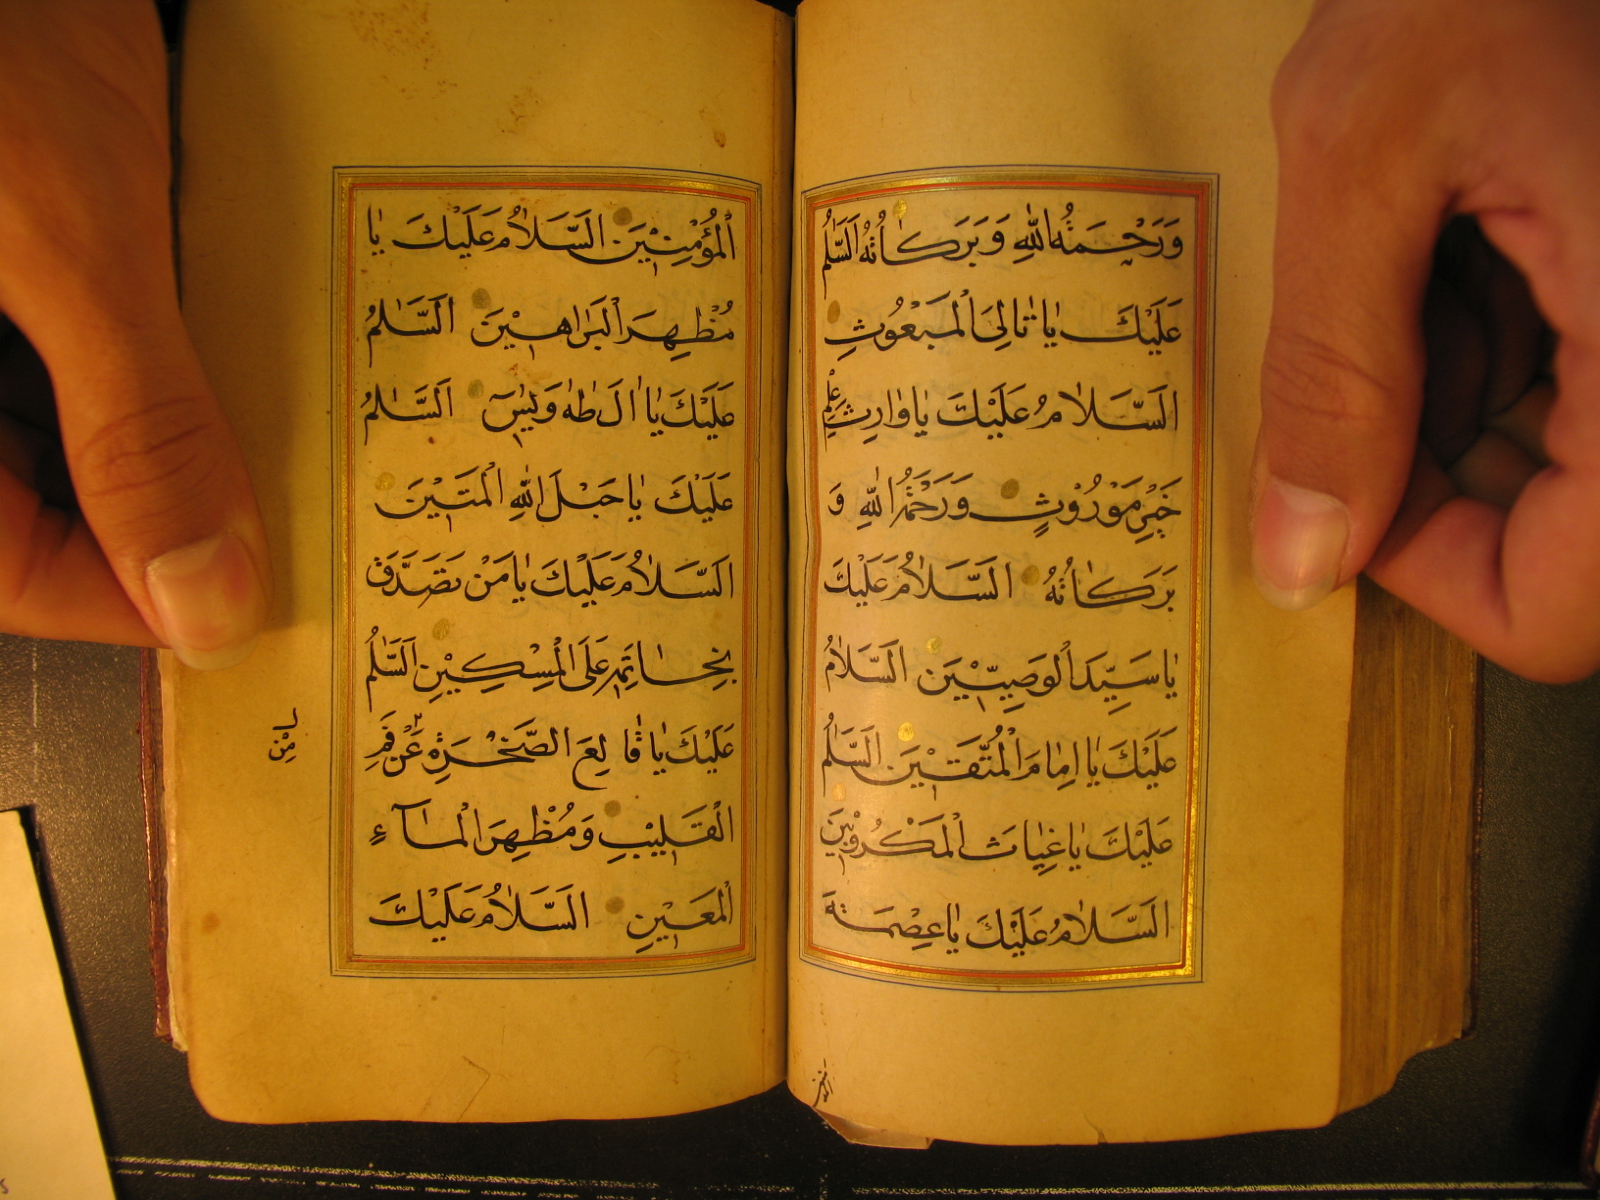 وَرَحْمَةُ اللهِ وَبَرَكَاتُهُ اَلسَّلٰمُ
عَلَيْكَ يَا تَالِيَ الْمَبْعُوثِ
اَلسَّلَامُ عَلَيْكَ يَا وَارِثَ عِلْمِ
خَيْرِ مَوْرُوْثٍ وَرَحْمَةُ اللهِ وَ
بَرَكَاتُهُ اَلسَّلَامُ عَلَيْكَ
يَا سَيِّدَ الْوَصِيِّيْنَ اَلسَّلَامُ
عَلَيْكَ يَا اِمَامَ الْمُتَّقِيْنَ اَلسَّلٰمُ
عَلَيْكَ يَا غِيَاثَ الْمَكْرُوْبِيْنَ
اَلسَّلَامُ عَلَيْكَ يَا عِصْمَةَ
الْمُؤْمِنِيْنَ اَلسَّلَامُ عَلَيْكَ يَا
مُظْهِرَ الْبَرَاهِيْنَ اَلسَّلٰمُ
عَلَيْكَ يَا اٰلَ طٰهٰ وَيٰسٓ اَلسَّلٰمُ
عَلَيْكَ يَا حَبْلَ اللهِ الْمَتِيْنَ
اَلسَّلَامُ عَلَيْكَ يَا مَنْ تَصَدَّقَ
بِخَاتَمِهِ عَلَى الْمِسْكِيْنِ اَلسَّلٰمُ
عَلَيْكَ يَا قَالِعَ الصَّخْرَةِ عَنْ فَمِ
الْقَلِيْبِ وَمُظْهِرَ الْمَآءِ
الْمَعِيْنِ اَلسَّلَامُ عَلَيْكَ